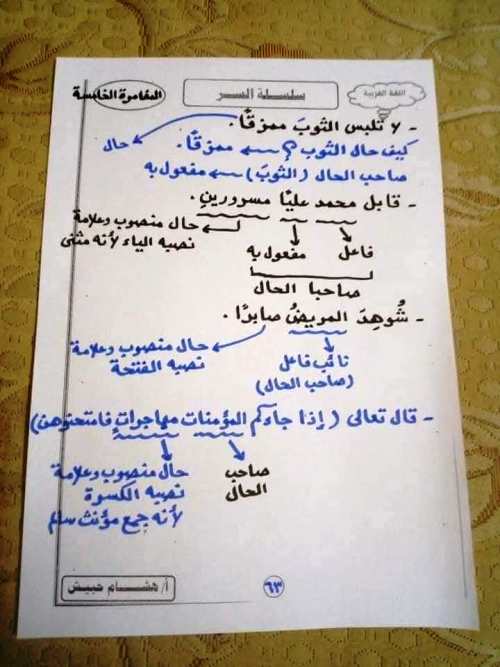 اللغة العربية
سلسلة السر
المغامرة الخامسة
- لا تلبس الثوبَ ممزقًا.
كيف حال الثوب؟ ← ممزقًا. حال
صاحب الحال (الثوبَ) ← مفعول به
- قابل محمد عليًا مسرورينِ.
فاعل
مفعول به
حال منصوب وعلامة
نصبه الياء لأنه مثنى
صاحبا الحال
- شُوهِدَ المريضُ صابرًا.
نائب فاعل
(صاحب الحال)
حال منصوب وعلامة
نصبه الفتحة
- قال تعالى (إذا جاءكم المؤمنات مهاجراتٍ فامتحنوهن)
صاحب
الحال
حال منصوب وعلامة
نصبه الكسرة
لأنه جمع مؤنث سالم
٦٣
أ/ هشام حبيش